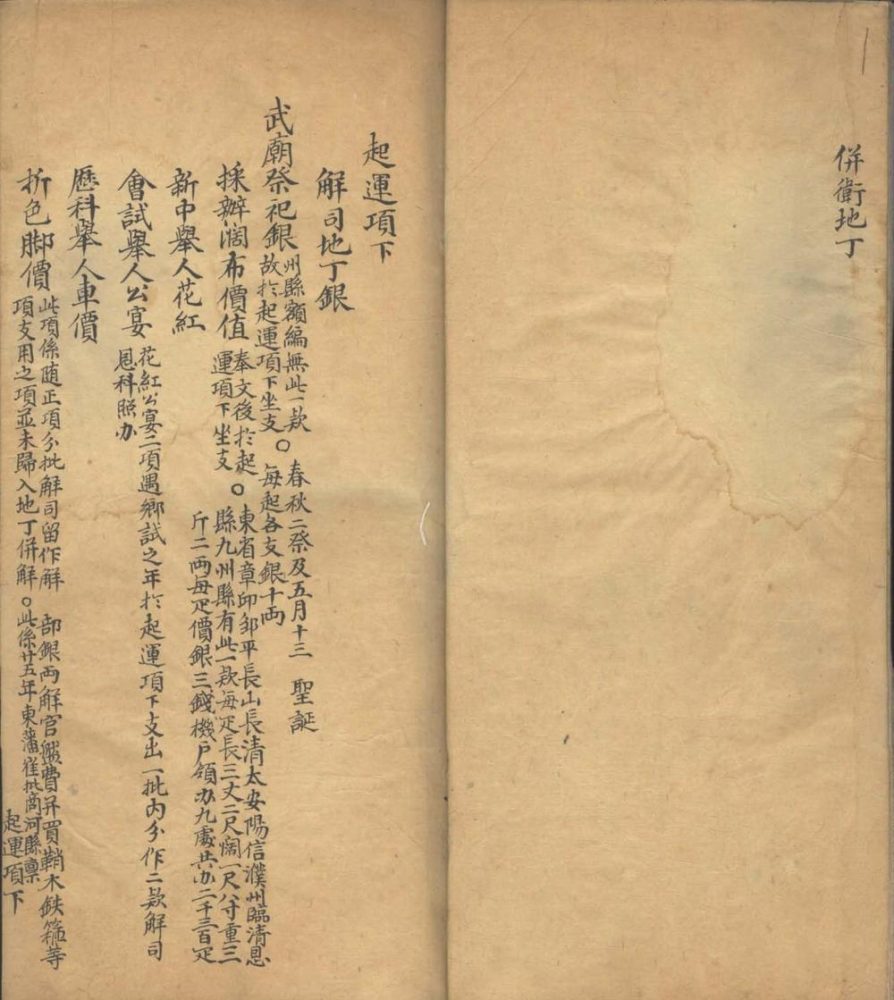 併衛地丁
起運項下
解司地丁銀
武廟祭祀銀
州縣額編無此一款
故於起運項下坐支
○
春秋二祭及五月十三 聖誕
每起各支銀十両
採辦濶布價值
奉文後於起
運項下坐支
○
東省章邱鄒平長山長清太安陽信濮州臨清恩
縣九州縣有此一款每疋長三丈二尺濶一尺八寸重三
斤二両每疋價銀三錢機户領办九處共办二千三百疋
新中舉人花紅
會試舉人公宴
花紅公宴二項遇鄉試之年於起運項下支出一批內分作二款解司
恩科照办
歷科舉人車價
折色脚價
此項係随正項分批解司留作解 部銀両解官盤費并買鞘木鉄箍等
項支用之項並未歸入地丁併解○此係廿五年東藩崔批商河縣稟
起運項下